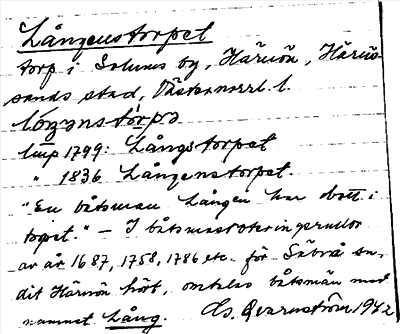 Långenstorpet
torp i Solums by, Härnön, Härnö-
sands stad, Västernorrl. l.
lóŋənstòrpə
lmp 1799: Långstorpet
" 1836 Långenstorpet.
"En båtsman Lången har bott i
torpet." – I båtsmansroteringsrullor
av år 1687, 1758, 1786 etc. för Säbrå sn,
dit Härnön hört, omtalas båtsmän med
namnet Lång. Qvarnström 1942